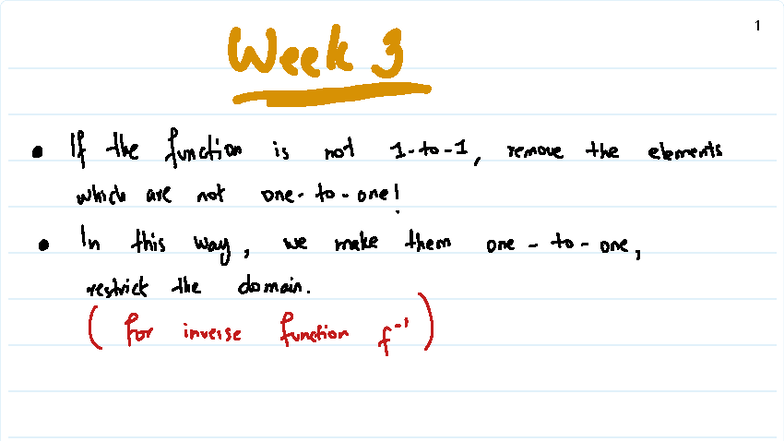 1
Week 3
• If the function is not 1-to-1, remove the elements
which are not one-to-one!
• In this way, we make them one-to-one,
restrict the domain.
(for inverse function f⁻¹)